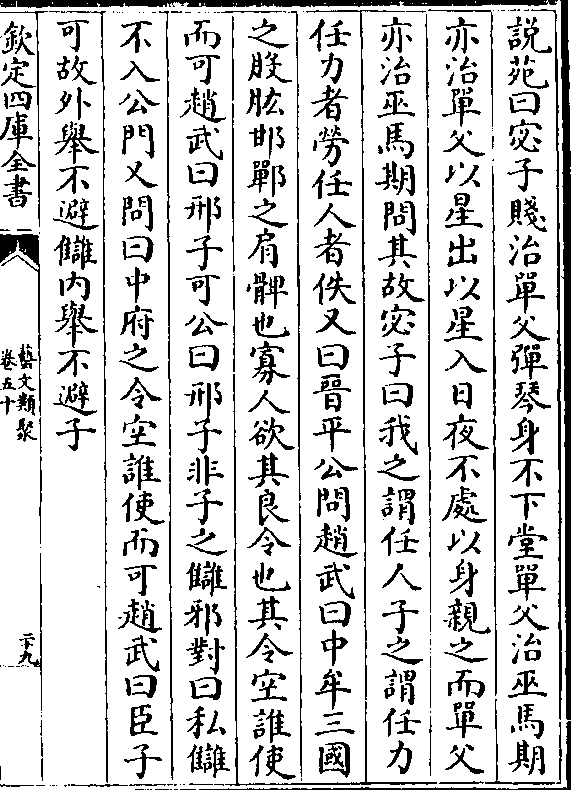 說苑曰宓子賤治單父彈琴身不下堂單父治巫馬期
亦治單父以星出以星入日夜不處以身親之而單父
亦治巫馬期問其故宓子曰我之謂任人子之謂任力
任力者勞任人者佚又曰晉平公問趙武曰中牟三國
之股肱邯鄲之肩髀也寡人欲其良令也其令空誰使
而可趙武曰邢子可公曰邢子非子之讎邪對曰私讎
不入公門又問曰中府之令空誰使而可趙武曰臣子
可故外舉不避讎内舉不避子
欽定四庫全書
藝文類聚
卷五十
二十九